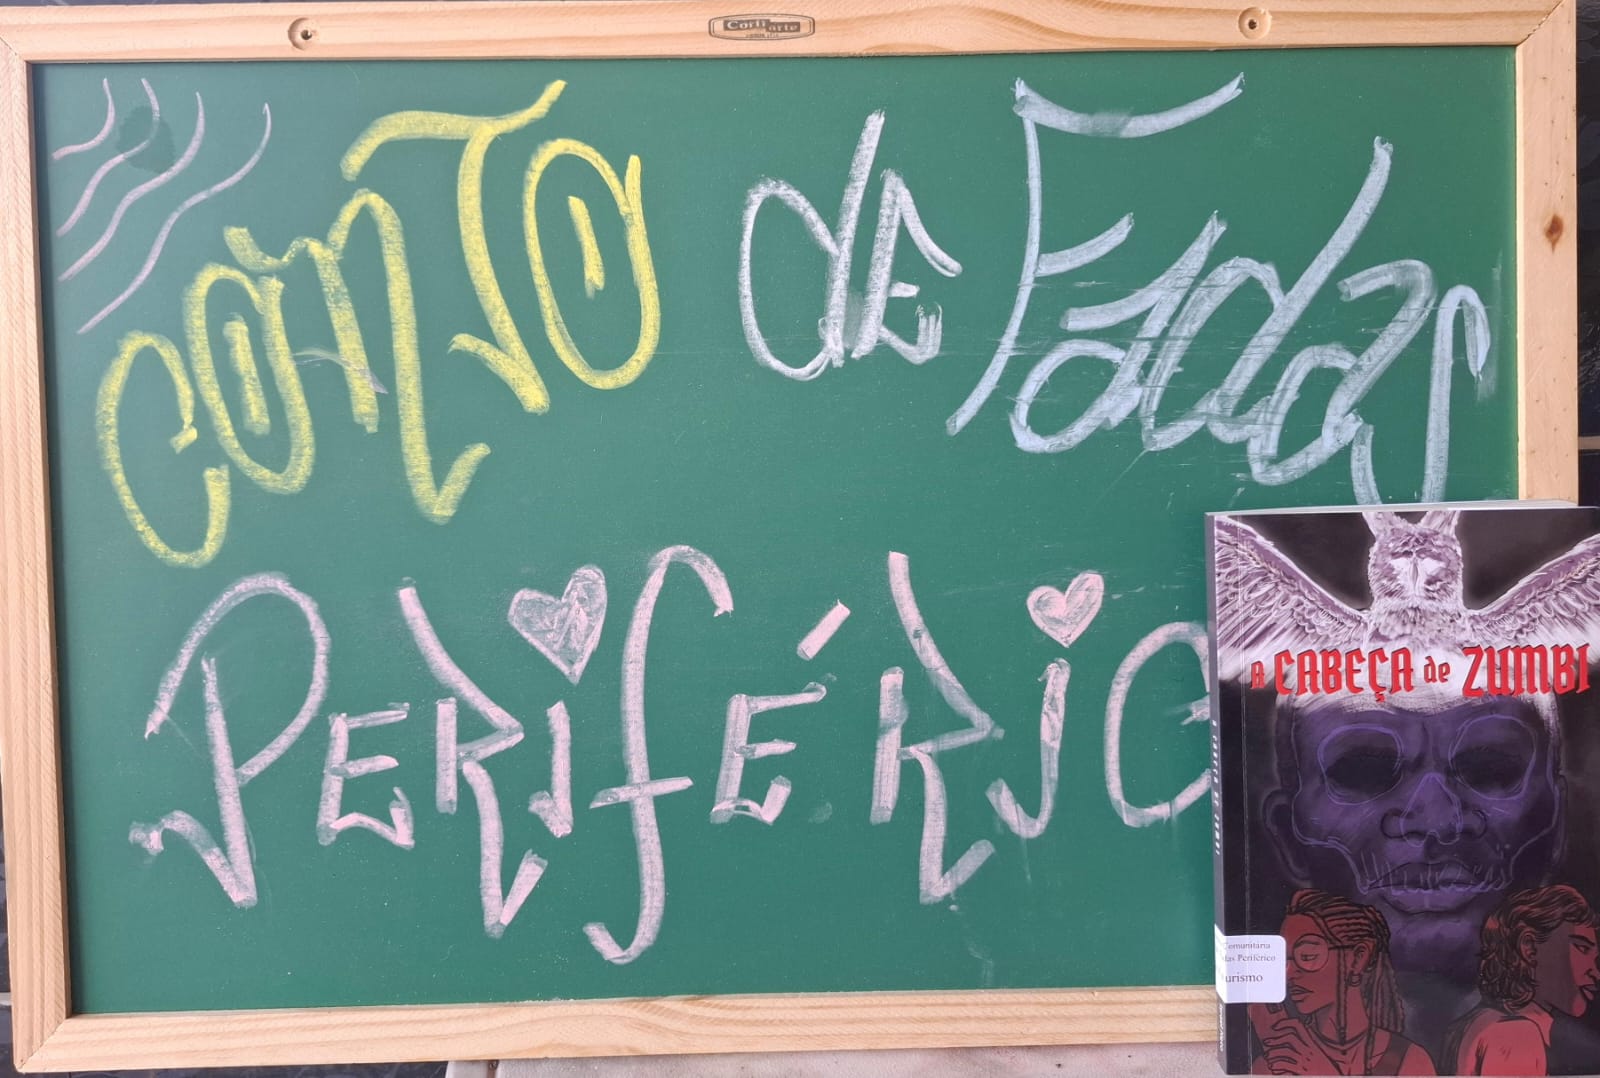 Corti arte
CONTO de Fadas
PERIFÉRIC
A CABEÇA de ZUMBI
A CABEÇA DE ZUMBI
Comunitária
das Periférico
urismo